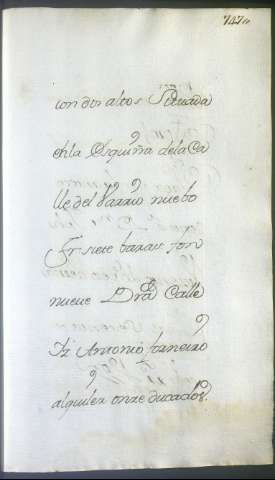 747
con dos altos Situada
en la Esquina dela Ca
lle del varrio nuebo
Fr siete baras fon
nueve Dra Calle
Iz Antonio forneiro
alquiler onze ducados.